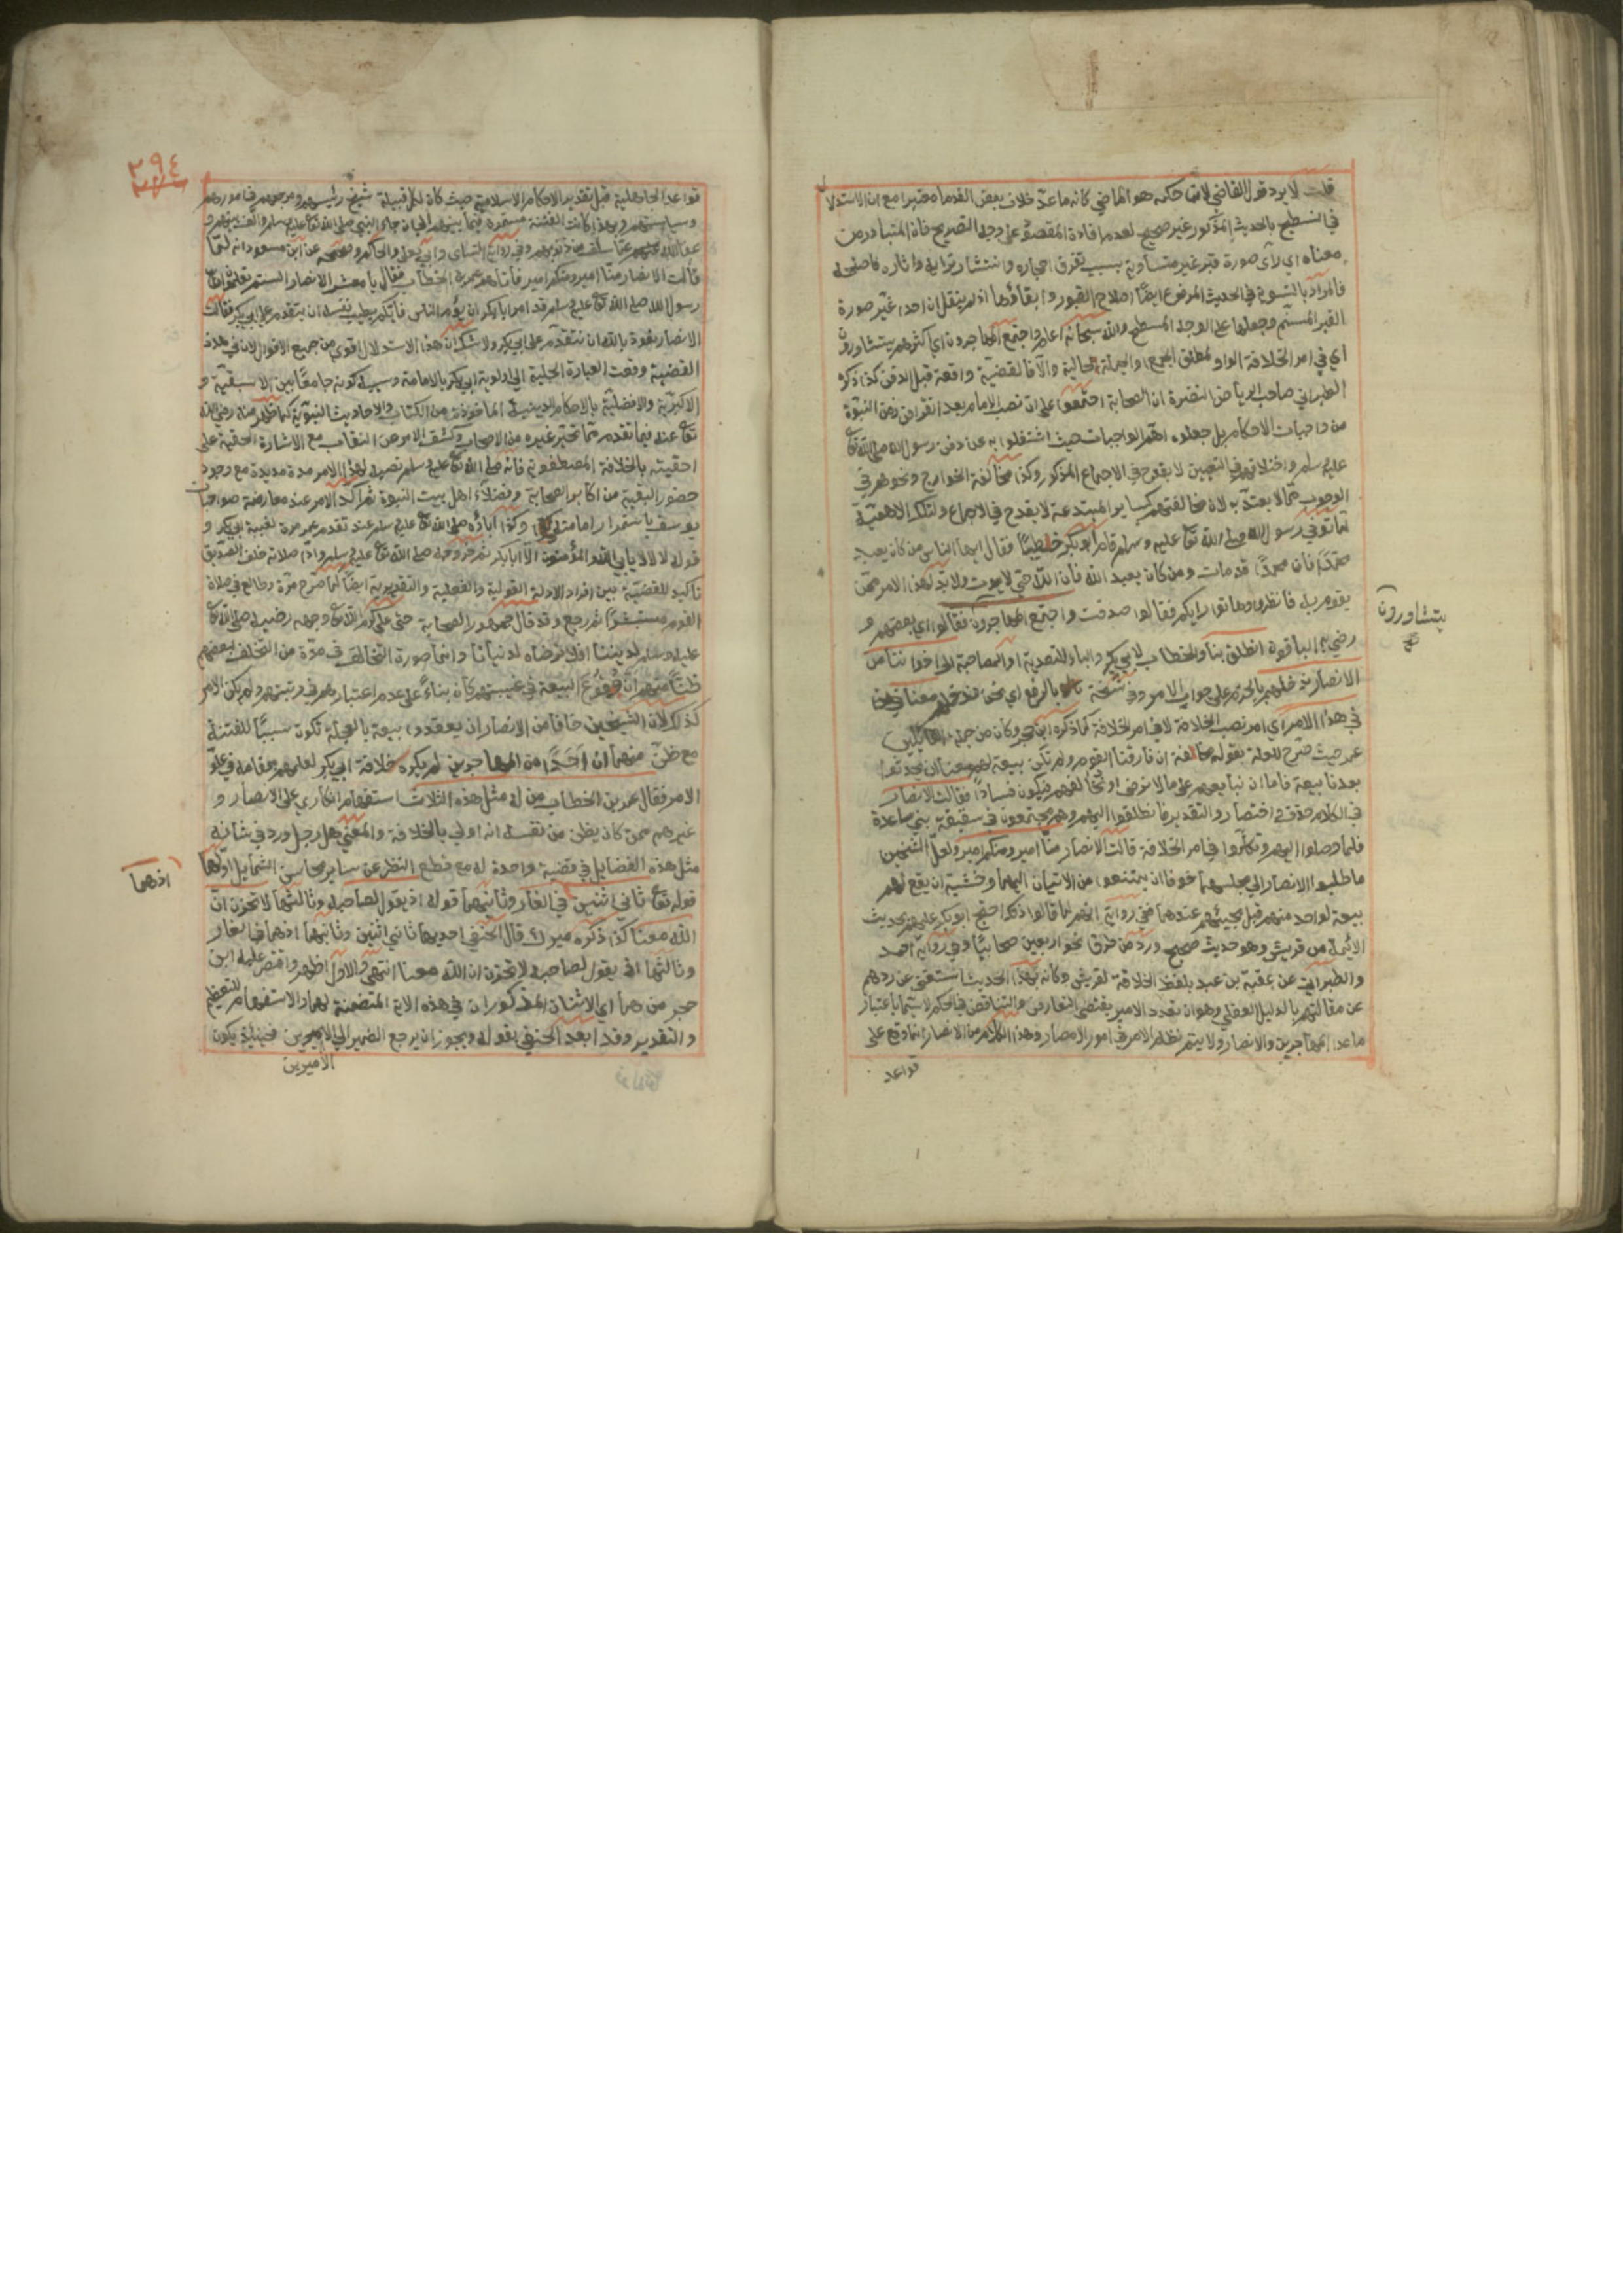 قلت لا يرد قول القاضي لان حكمه هو الماضي كانه ما عد خلاف بعض القدماء معتبرا مع ان الاستدلا
في التسطيح بالحديث المذكور غير صحيح لعدم افادة المقصود على وجه التصريح فان المتبادر من
معناه اي لا اي صورة قبر غير متساوية بسبب تفرق احجاره وانتشار ترابه واثاره فاصلحه
فالمراد بالتسوية في الحديث المرفوع ايضا اصلاح القبور وابقاؤها اذ لم ينقل ان احدا غير صورة
القبر المسنم وجعلها على الوجه المسطح والله سبحانه اعلم واجتمع المهاجرون اي اكثرهم يتشاورون
اي في امر الخلافة الواو لمطلق الجمع والجملة حالية والا فالقضية واقعة قبل الدفن كذا ذكره
الطبراني صاحب الرياض النضرة ان الصحابة اجتمعوا على ان نصب الامام بعد انقراض زمن النبوة
من واجبات الاحكام بل جعلوه اهم الواجبات حيث اشتغلوا به عن دفن رسول الله صلى الله تع
عليه وسلم واختلافهم في التعيين لا يقدح في الاجماع المذكور وكذا مخالفة الخوارج ونحوهم في
الوجوب مما لا يعتد به لان مخالفتهم كساير المبتدعة لا يقدح في الاجماع ولتلك الاهمية
لما توفي رسول الله صلى الله تع عليه وسلم قام ابو بكر خطيبا فقال ايها الناس من كان يعبد
محمدا فان محمدا قد مات ومن كان يعبد الله فان الله حي لا يموت ولا بد لهذا الامر ممن
يقوم به فانظروا وهاتوا رايكم فقالوا صدقت واجتمع المهاجرون فقالوا اي بعضهم و
رضي به الباقون انطلق بنا والخطاب لابي بكر والباء للتعدية او المصاحبة الى اخواننا من
الانصار ندخلهم بالجزم على جواب الامر وفي نسخة بالرفع اي نحن ندخلهم معنا
في هذا الامر اي امر نصب الخلافة لا في امر الخلافة كما ذكره ابن حجر وكان من جملة القايلين
عمر حيث صرح للعلة بقوله مخافة ان فارقنا القوم ولم تكن بيعة ان يحدثوا
بعدنا بيعة فاما ان نبايعهم على ما لا نرضى او نخالفهم فيكون فسادا فقالت الانصار
في الكلام حذف اختصار والتقدير فانطلقوا اليهم وهم مجتمعون في سقيفة بني ساعدة
فلما وصلوا اليهم وتكلموا في امر الخلافة قالت الانصار منا امير ومنكم امير ولعل الشيخين
ما طلبوا الانصار الى مجلسهما خوفا ان يمتنعوا من الاتيان اليهما وخشية ان يقع لهم
بيعة لواحد منهم قبل مجيئهم عندهما ففي رواية انهم لما قالوا ذلك احتج ابو بكر عليهم بحديث
الايمة من قريش وهو حديث صحيح ورد من طرق نحو اربعين صحابيا وفي رواية احمد
والطبراني عن عقبة بن عبد بلفظ الخلافة لقريش وكانه بهذا الحديث استغنى عن ردهم
عن مقالتهم بالدليل العقلي وهو ان تعدد الامير يقتضي التعارض والتناقض في الحكم لا سيما باعتبار
ما عدا المهاجرين والانصار ولا يتم نظام الامر في امور الامصار وهذا الكلام من الانصار انما وقع على
قواعد
يتشاورون
صح
٢٩٤
قواعد الجاهلية قبل تقدير الاحكام الاسلامية حيث كان لكل قبيلة شيخ رئيسهم ومرجعهم في امورهم
وسياستهم وبهذا كانت الفتنة مستمرة فيما بينهم الى ان جاء النبي صلى الله تع عليه وسلم والف بينهم و
عفا الله عنهم عما سلف من ذنوبهم وفي رواية النسائي وابي يعلى والحاكم وصححه عن ابن مسعود انه لما
قالت الانصار منا امير ومنكم امير فاتاهم عمر بن الخطاب فقال يا معشر الانصار الستم تعلمون ان
رسول الله صلى الله تع عليه وسلم قد امر ابا بكر ان يؤم الناس فايكم يطيب نفسه ان يتقدم على ابي بكر فقالت
الانصار نعوذ بالله ان نتقدم على ابي بكر ولا شك ان هذا الاستدلال اقوى من جميع الاقوال لان في هذه
القضية وقعت العبارة الجلية الى اولوية ابي بكر بالامامة وسببه كونه جامعا بين الاسبقية و
الاكبرية والافضلية بالاحكام الدينية الماخوذة من الكتاب والاحاديث النبوية كما ظهر منه رضي الله
تع عنه فيما تقدم مما تحير غيره من الاصحاب وكشف الامر من النقاب مع الاشارة الحقية على
احقيته بالخلافة المصطفوية فانه صلى الله تع عليه وسلم نصبه لهذا الامر مدة مديدة مع وجود
حضور البقية من اكابر الصحابة وفضلاء اهل بيت النبوة ثم اكد الامر عند معارضة صواحبات
يوسف باستمرار امامته وكذا اباؤه صلى الله تع عليه وسلم عند تقدم عمر مرة لغيبة ابي بكر و
قوله لا لا لا يابى الله والمؤمنون الا ابا بكر ثم خروجه صلى الله تع عليه وسلم واداء صلاته خلف الصديق
تاكيد للقضية بين افراد الادلة القولية والفعلية والتقريرية ايضا لما خرج مرة وطالع في صلاة
القوم مستبشرا ثم رجع وقد قال جمهور الصحابة حتى علي كرم الله تع وجهه رضيه صلى الله تع
عليه وسلم لديننا افلا نرضاه لدنيانا وانما صورة التخالف في مدة من التخلف لبعضهم
ظنا منهم ان وقوع البيعة في غيبتهم كان بناء على عدم اعتبارهم في رتبتهم ولم يكن الامر
كذلك لان الشيخين خافا من الانصار ان يعقدوا بيعة بالعجلة تكون سببا للفتنة
مع ظن منهما ان احدا من المهاجرين لم يكره خلافة ابي بكر لعلمهم بمقامه في علو
الامر فقال عمر بن الخطاب من له مثل هذه الثلاث استفهام انكاري على الانصار و
غيرهم ممن كان يظن من نفسه انه اولى بالخلافة والمعنى هل رجل ورد في شانه
مثل هذه الفضايل في قضية واحدة له مع قطع النظر عن ساير محاسن الشمايل اولها
قوله تع ثاني اثنين في الغار وثانيها قوله اذ يقول لصاحبه وثالثها لا تحزن ان
الله معنا كذا ذكره ميرك قال الحنفي احديها ثاني اثنين وثانيها اذ هما في الغار
وثالثها اذ يقول لصاحبه لا تحزن ان الله معنا انتهى والاول اظهر واقتصر عليه ابن
حجر من هما اي الاثنان المذكوران في هذه الاية المتضمنة لهما والاستفهام للتعظيم
والتقدير وقد ابعد الحنفي بقوله ويجوز ان يرجع الضمير الى الاميرين فحينئذ يكون
الاميرين
اذ هما